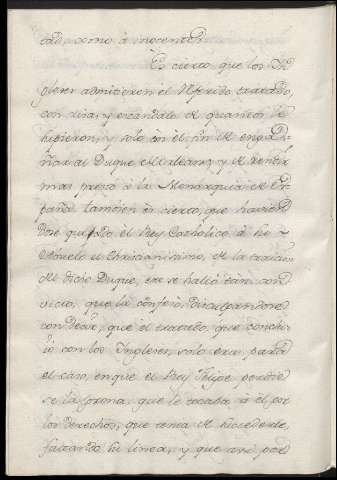 tad, sino à inocentes.
Es cierto que los In
gleses admitieron el referido tratado,
con risa, y escandalo de quantos le
hisieron, y solo con èl fin de enga
ñar al Duque de Orleans, y de
mas presto à la Monarquia de Es
paña tambien es cierto, que havien
dose quejado el Rey Catholico à su
Abuelo el Christianisimo, de la traicion
del dicho Duque, ese se hallò tan con
vicio, que la confesò, disculpandose
con decir, que el tratado, que conclu
iò con los Ingleses, solo era para
el caso, en que el Rey Felipe perdie
se la Corona, que le tocaba à èl por
los derechos, que tenia de succederle,
faltando su linea, y que assi por